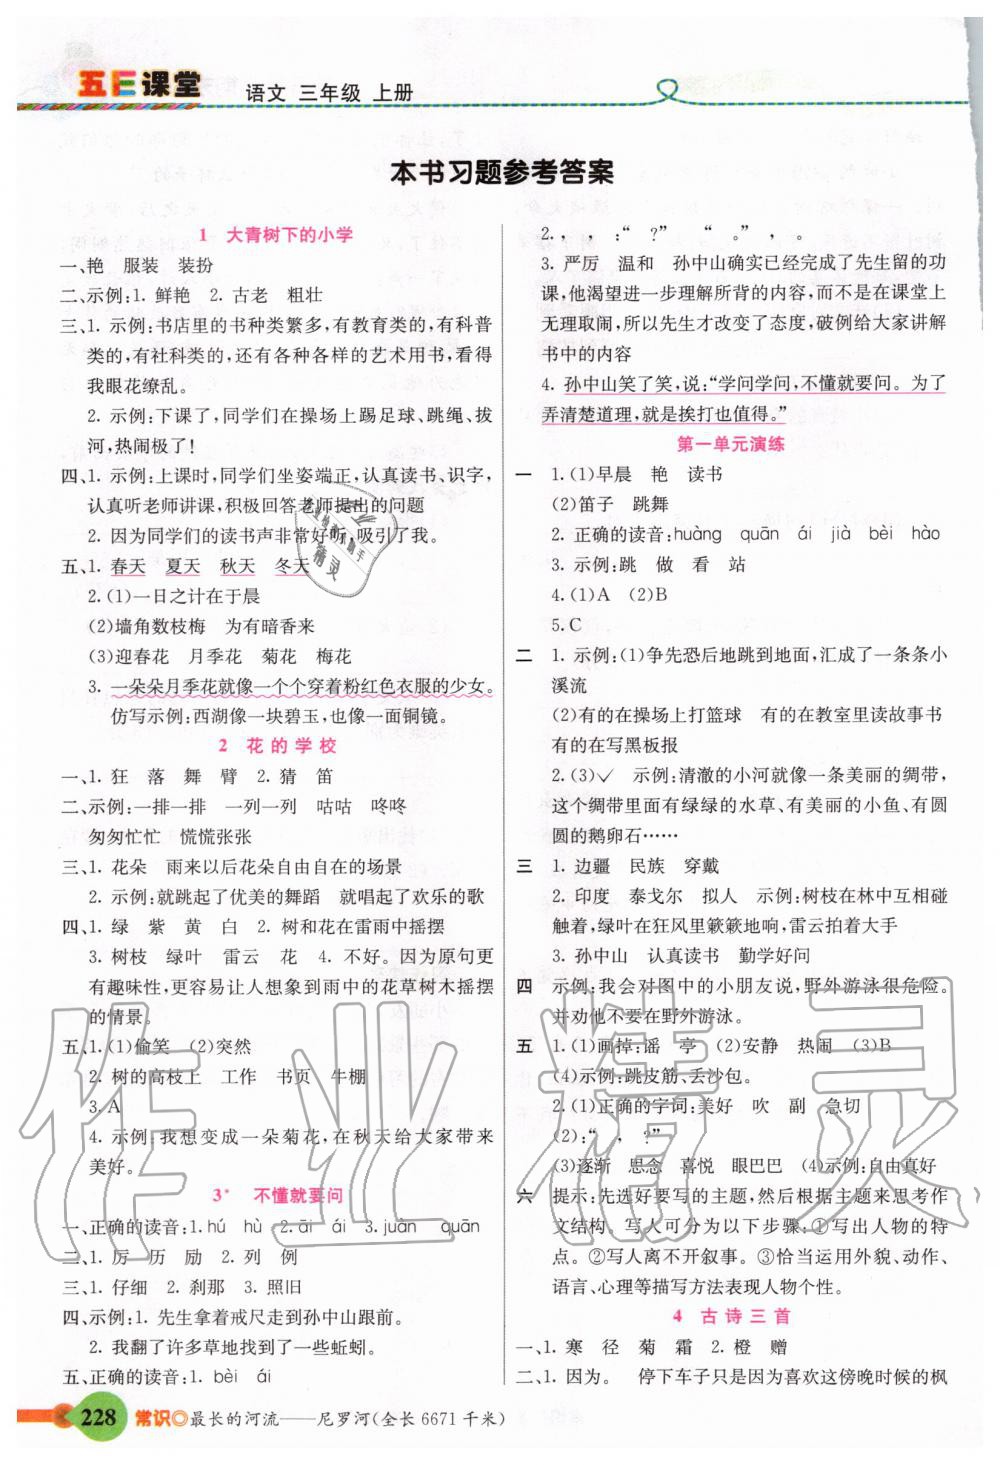 五E课堂
语文 三年级 上册
本书习题参考答案
1 大青树下的小学
一、艳 服装 装扮
二、示例:1. 鲜艳 2. 古老 粗壮
三、1. 示例:书店里的书种类繁多,有教育类的,有科普
类的,有社科类的,还有各种各样的艺术用书,看得
我眼花缭乱。
2. 示例:下课了,同学们在操场上踢足球、跳绳、拔
河,热闹极了!
四、1. 示例:上课时,同学们坐姿端正,认真读书、识字,
认真听老师讲课,积极回答老师提出的问题
2. 因为同学们的读书声非常好听,吸引了我。
五、1. 春天 夏天 秋天 冬天
2. (1)一日之计在于晨
(2)墙角数枝梅 为有暗香来
(3)迎春花 月季花 菊花 梅花
3. 一朵朵月季花就像一个个穿着粉红色衣服的少女。
仿写示例:西湖像一块碧玉,也像一面铜镜。
2 花的学校
一、1. 狂 落 舞 臂 2. 猜 笛
二、示例:一排一排 一列一列 咕咕 咚咚
匆匆忙忙 慌慌张张
三、1. 花朵 雨来以后花朵自由自在的场景
2. 示例:就跳起了优美的舞蹈 就唱起了欢乐的歌
四、1. 绿 紫 黄 白 2. 树和花在雷雨中摇摆
3. 树枝 绿叶 雷云 花 4. 不好。因为原句更
有趣味性,更容易让人想象到雨中的花草树木摇摆
的情景。
五、1. (1)偷笑 (2)突然
2. 树的高枝上 工作 书页 牛棚
3. A
4. 示例:我想变成一朵菊花,在秋天给大家带来
美好。
3* 不懂就要问
一、正确的读音:1. hú hù 2. āi ái 3. juān quān
二、1. 厉 历 励 2. 列 例
三、1. 仔细 2. 刹那 3. 照旧
四、示例:1. 先生拿着戒尺走到孙中山跟前。
2. 我翻了许多草地找到了一些蚯蚓。
五、正确的读音:1. bèi ái
2. , , :“ ?” “ 。” , 。
3. 严厉 温和 孙中山确实已经完成了先生留的功
课,他渴望进一步理解所背的内容,而不是在课堂上
无理取闹,所以先生才改变了态度,破例给大家讲解
书中的内容
4. 孙中山笑了笑,说:“学问学问,不懂就要问。为了
弄清楚道理,就是挨打也值得。”
第一单元演练
一 1. (1)早晨 艳 读书
(2)笛子 跳舞
2. 正确的读音:huàng quān ái jià bèi hào
3. 示例:跳 做 看 站
4. (1)A (2)B
5. C
二 1. 示例:(1)争先恐后地跳到地面,汇成了一条条小
溪流
(2)有的在操场上打篮球 有的在教室里读故事书
有的在写黑板报
2. (3)✓ 示例:清澈的小河就像一条美丽的绸带,
这个绸带里面有绿绿的水草、有美丽的小鱼、有圆
圆的鹅卵石……
三 1. 边疆 民族 穿戴
2. 印度 泰戈尔 拟人 示例:树枝在林中互相碰
触着,绿叶在狂风里簌簌地响,雷云拍着大手
3. 孙中山 认真读书 勤学好问
四 示例:我会对图中的小朋友说,野外游泳很危险。
并劝他不要在野外游泳。
五 1. (1)画掉:谣 亭 (2)安静 热闹 (3)B
(4)示例:跳皮筋、丢沙包。
2. (1)正确的字词:美好 吹 副 急切
(2):“ , ?”
(3)逐渐 思念 喜悦 眼巴巴 (4)示例:自由真好
六 提示:先选好要写的主题,然后根据主题来思考作
文结构。写人可分为以下步骤:①写出人物的特
点。②写人离不开叙事。③恰当运用外貌、动作、
语言、心理等描写方法表现人物个性。
4 古诗三首
一、1. 寒 径 菊 霜 2. 橙 赠
二、1. 因为。 停下车子只是因为喜欢这傍晚时候的枫
228 常识◎最长的河流——尼罗河(全长 6671 千米)
作业精灵